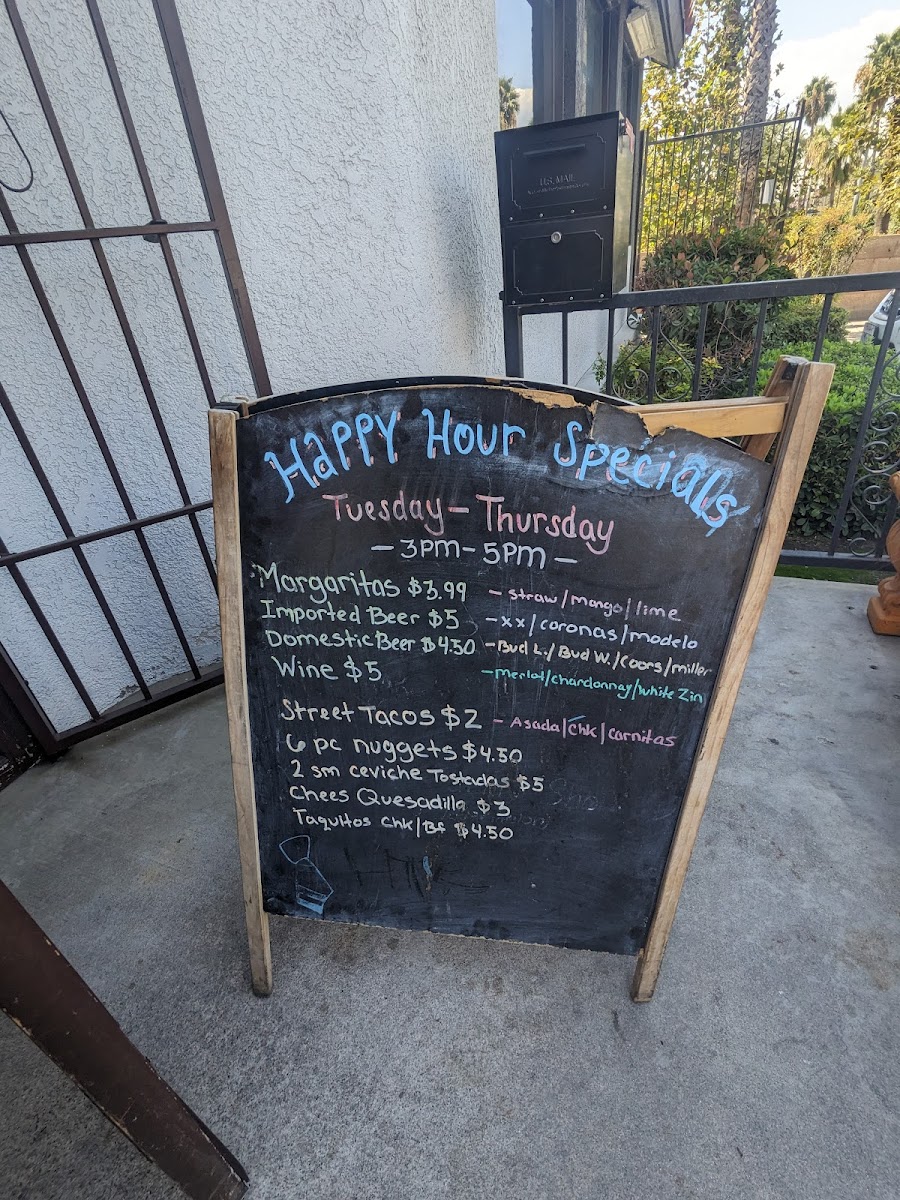 U.S. MAIL
Happy Hour Specials
Tuesday - Thursday
- 3pm - 5pm -
Margaritas $3.99 - straw/mango/lime
Imported Beer $5 - xx/coronas/modelo
Domestic Beer $4.50 - Bud L./Bud W./Coors/miller
Wine $5 - merlot/chardonnay/white Zin
Street Tacos $2 - Asada/chk/carnitas
6 pc nuggets $4.50
2 sm ceviche Tostadas $5
Chees Quesadilla $3
Taquitos chk/Bf $4.50